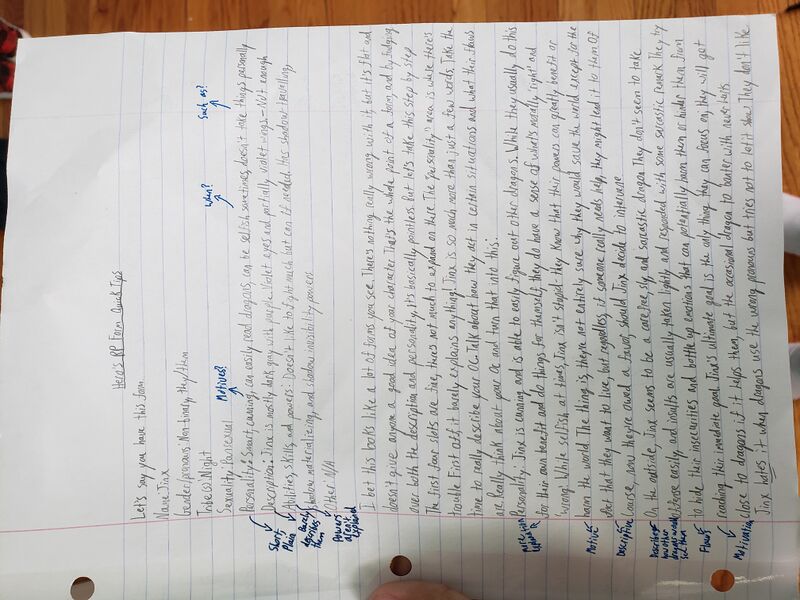 Hero's RP Form Quick Tips
Let's say you have this form
Name: Jinx
Gender/pronouns: Non-binary, they/them
Tribe: Night
Sexuality: Pansexual
Motives? when? Such as?
Personality: Smart, cunning, can easily read dragons, can be selfish sometimes, doesn't take things personally
Short Description: Jinx is mostly dark gray with purple. Violet eyes and partially violet wings. - Not enough
Plain Abilities, skills, and powers: Doesn't like to fight much but can if needed. Has shadow travelling,
Barely describes them shadow materializing, and shadow invisibility powers
Powers aren't explained Other: N/A
I bet this looks like a lot of forms you see. There's nothing really wrong with it, but it's flat and
doesn't give anyone a good idea of your character. That's the whole point of a form, and by fudging
over both the description and personality, it's basically pointless. But let's take this step by step
The first four slots are fine, there's not much to expand on there. The "personality" area is where there's
trouble. First off, it barely explains anything! Jinx is so much more than just a few words. Take the
time to really describe your OC. Talk about how they act in certain situations and what their flaws
are. Really think about your OC and turn that into this:
Personality: Jinx is cunning and is able to easily figure out other dragons. While they usually do this
for their own benefit and do things for themself, they do have a sense of what's morally "right" and
"wrong". While selfish at times, Jinx isn't stupid- they know that their powers can greatly benefit or
Motive harm the world. The thing is, they're not entirely sure why they would save the world except for the
fact that they want to live, but regardless, if someone really needs help, they might lend it to them. Of
Descriptive course, now they're owed a favor, should Jinx decide to intervene
On the outside, Jinx seems to be a carefree, sly, and sarcastic dragon. They don't seem to take
Describes how other dragons would see them offense easily, and insults are usually taken lightly and responded with some sarcastic remark. They try
to hide their insecurities and bottle up emotions that can potentially harm them or hinder them from
Flaws reaching their immediate goal. Jinx's ultimate goal is the only thing they can focus on, they will get
Motivation close to dragons if it helps them, but the occasional dragon to banter with never hurts
Jinx hates it when dragons use the wrong pronouns but tries not to let it show. They don't like